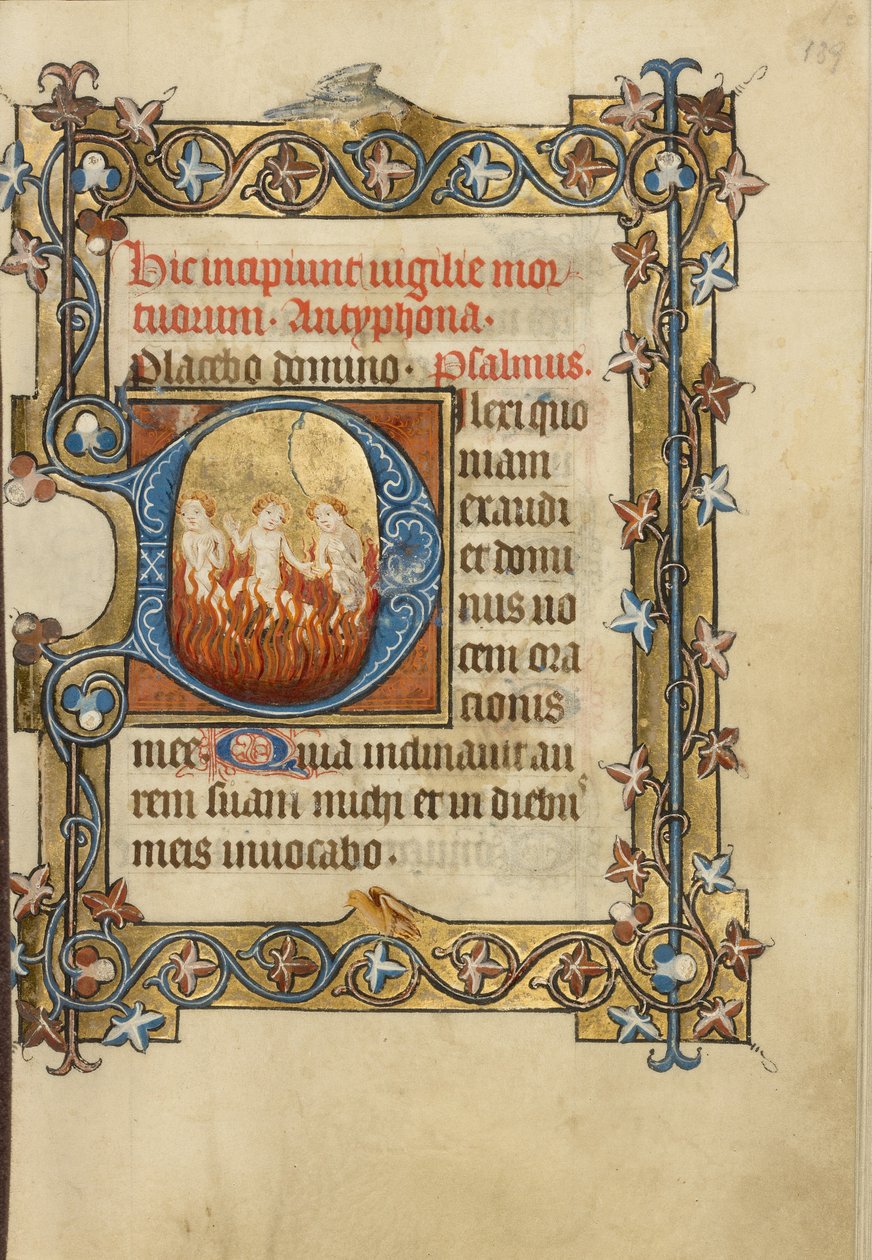 139
Hic incipiunt uigilie mor
tuorum. Antyphona.
Placebo domino. Psalmus.
Dilexi quo
niam
exaudi
et domi
nus uo
cem ora
tionis
mee. Quia inclinauit au
rem suam michi et in diebus
meis inuocabo.